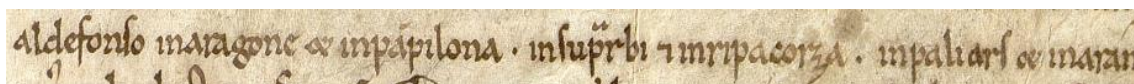 aldefonso inaragone et inpāpilona · insup̄rbi ⁊ inripacorza · inpaliars et inaran